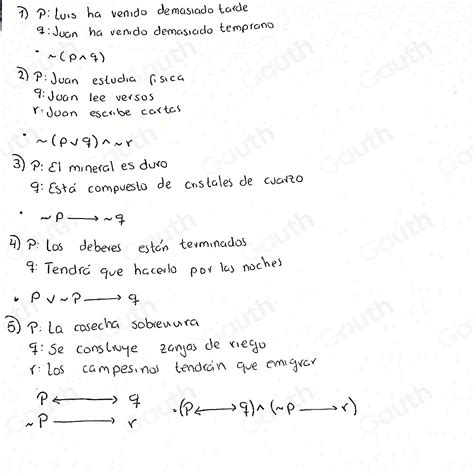 1) P: Luis ha venido demasiado tarde
q: Juan ha venido demasiado temprano
· ~(p∧q)
2) P: Juan estudia física
q: Juan lee versos
r: Juan escribe cartas
· ~(p∨q)∧~r
3) P: El mineral es duro
q: Está compuesto de cristales de cuarzo
· ~P→~q
4) P: Los deberes están terminados
q: Tendrá que hacerlo por las noches
· P∨~P→q
5) P: La cosecha sobrevivira
q: Se construye zanjas de riego
r: los campesinos tendrán que emigrar
P↔q ·(P↔q)∧(~P→r)
~P→r